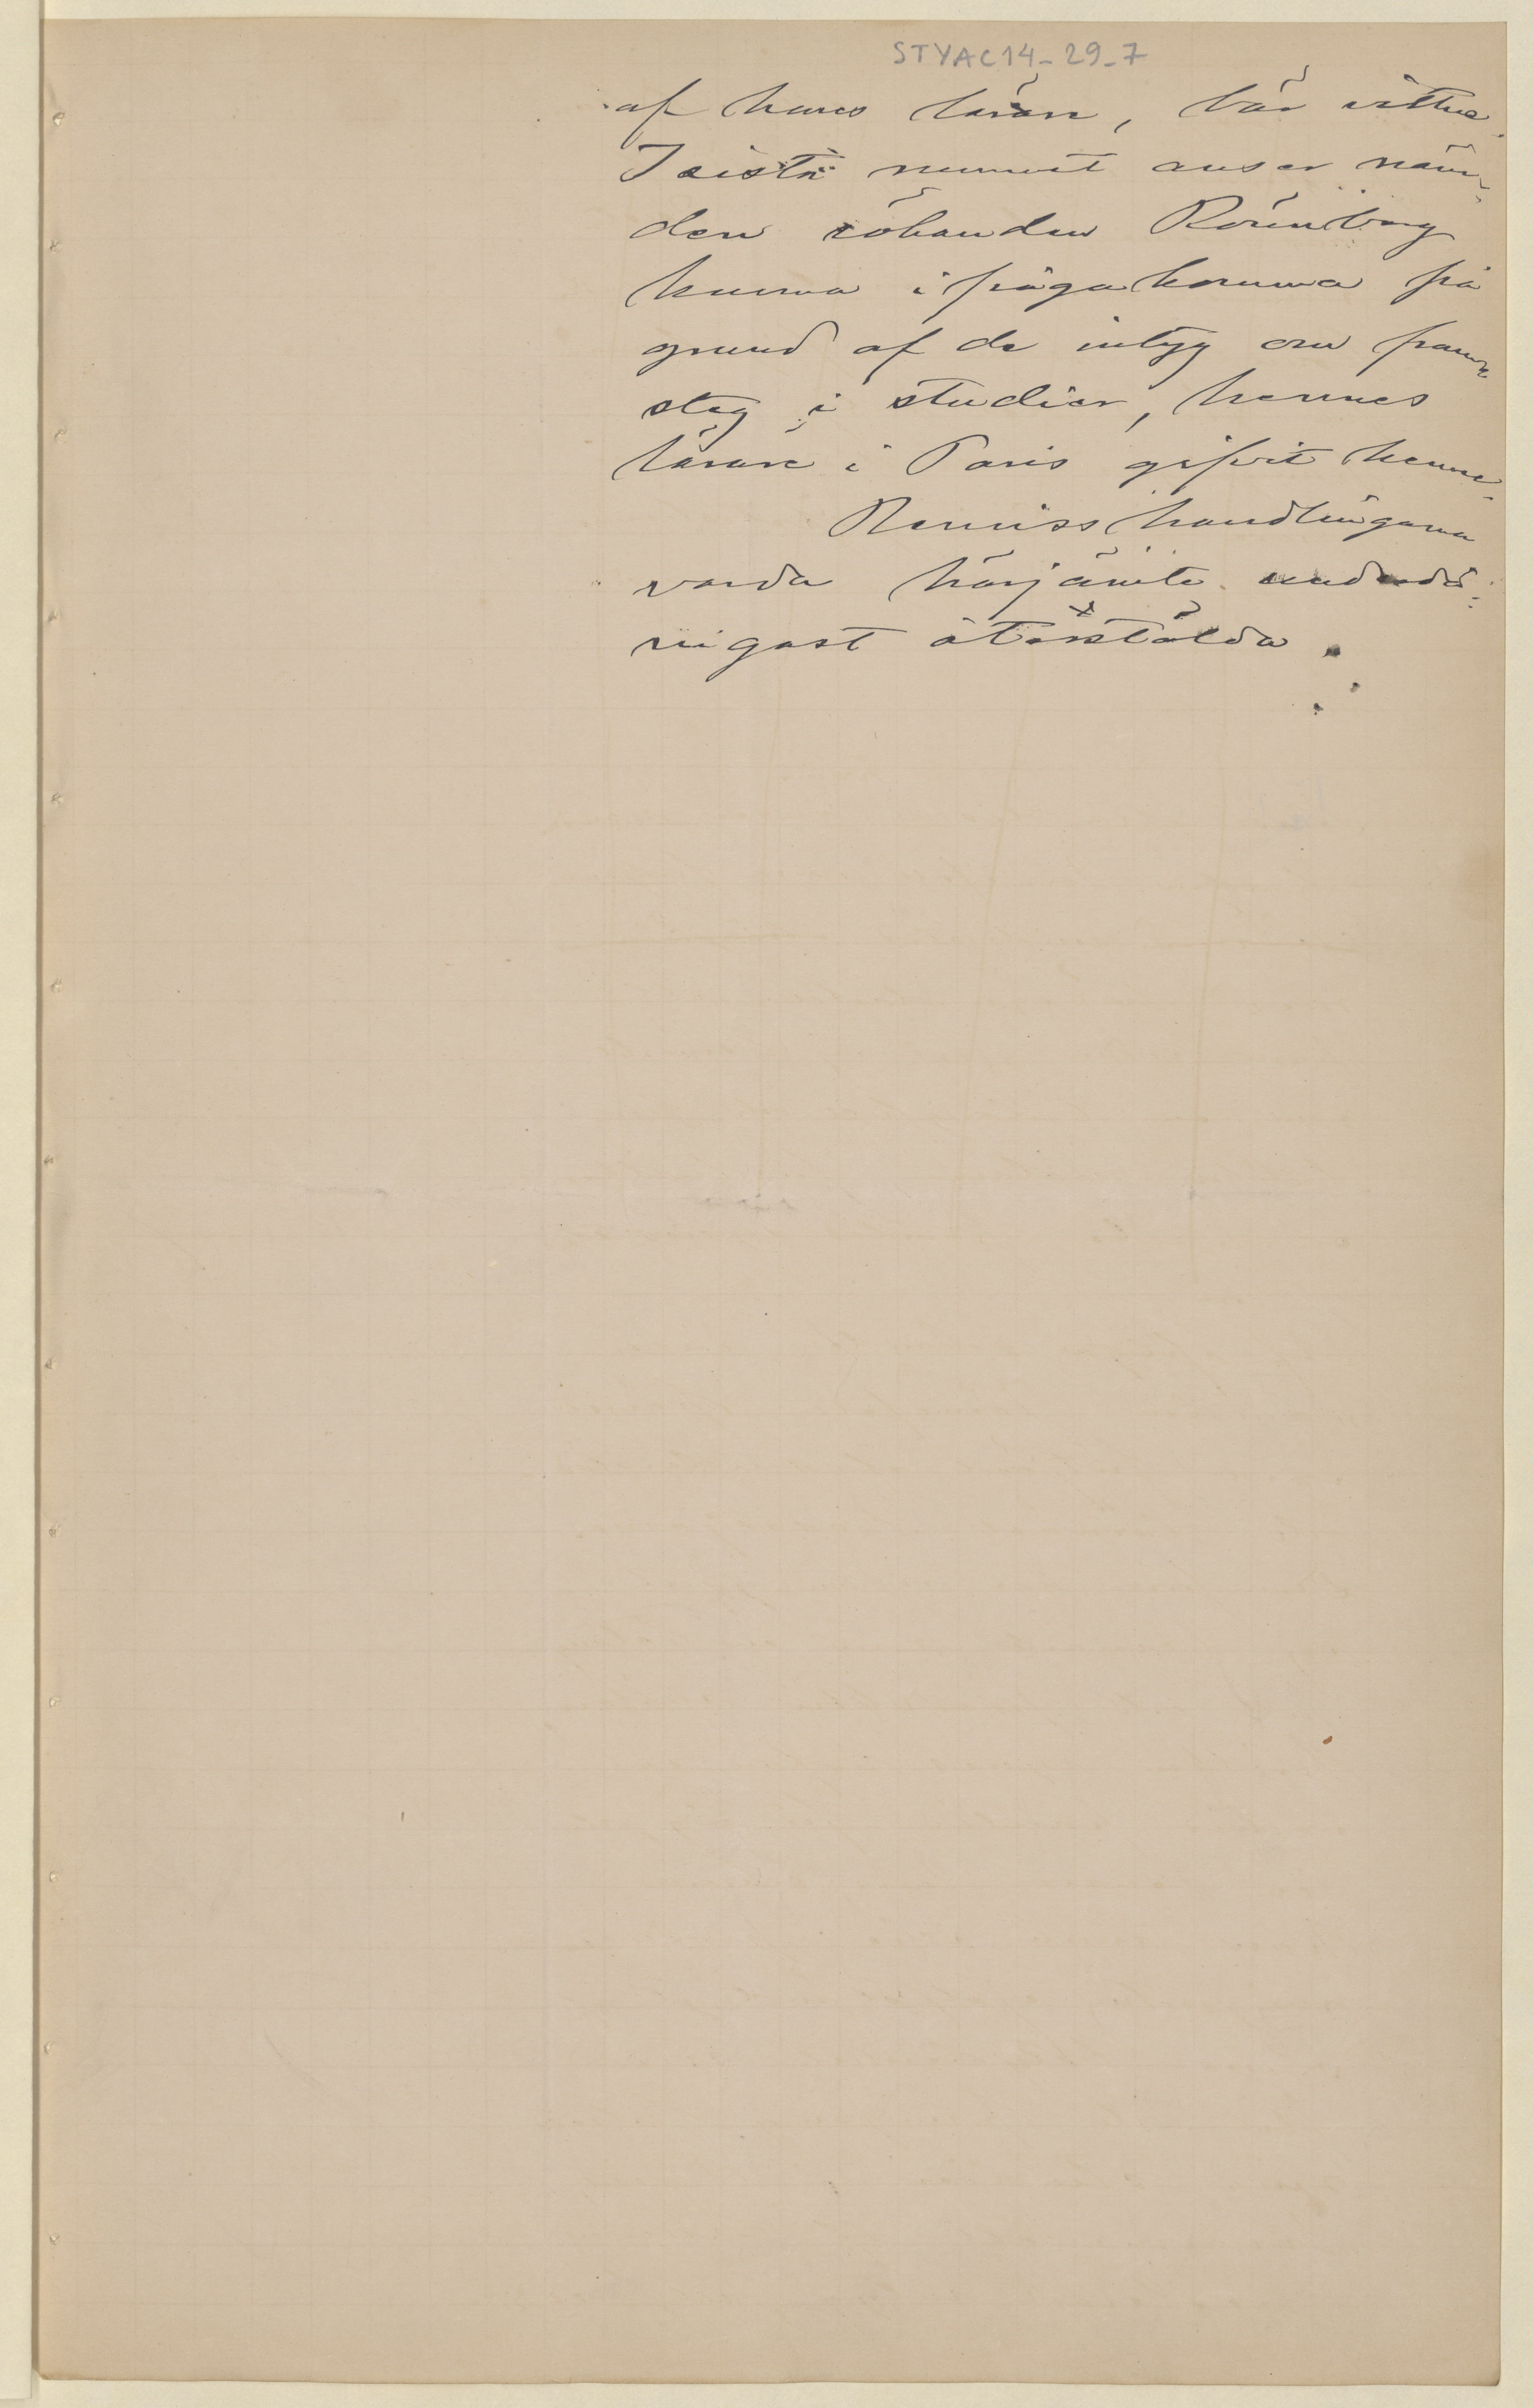 STYAC14-29-7
af hans lärare, bär vittne.
I sista rummet anser näm-
den sökanden Rönnberg
kunna i frågakomma på
grund af de intyg om fram-
steg i studier, hennes
lärare i Paris gifvit henne.
Remisshandlingarna
varda härjämte underdå-
nigast återstälda.